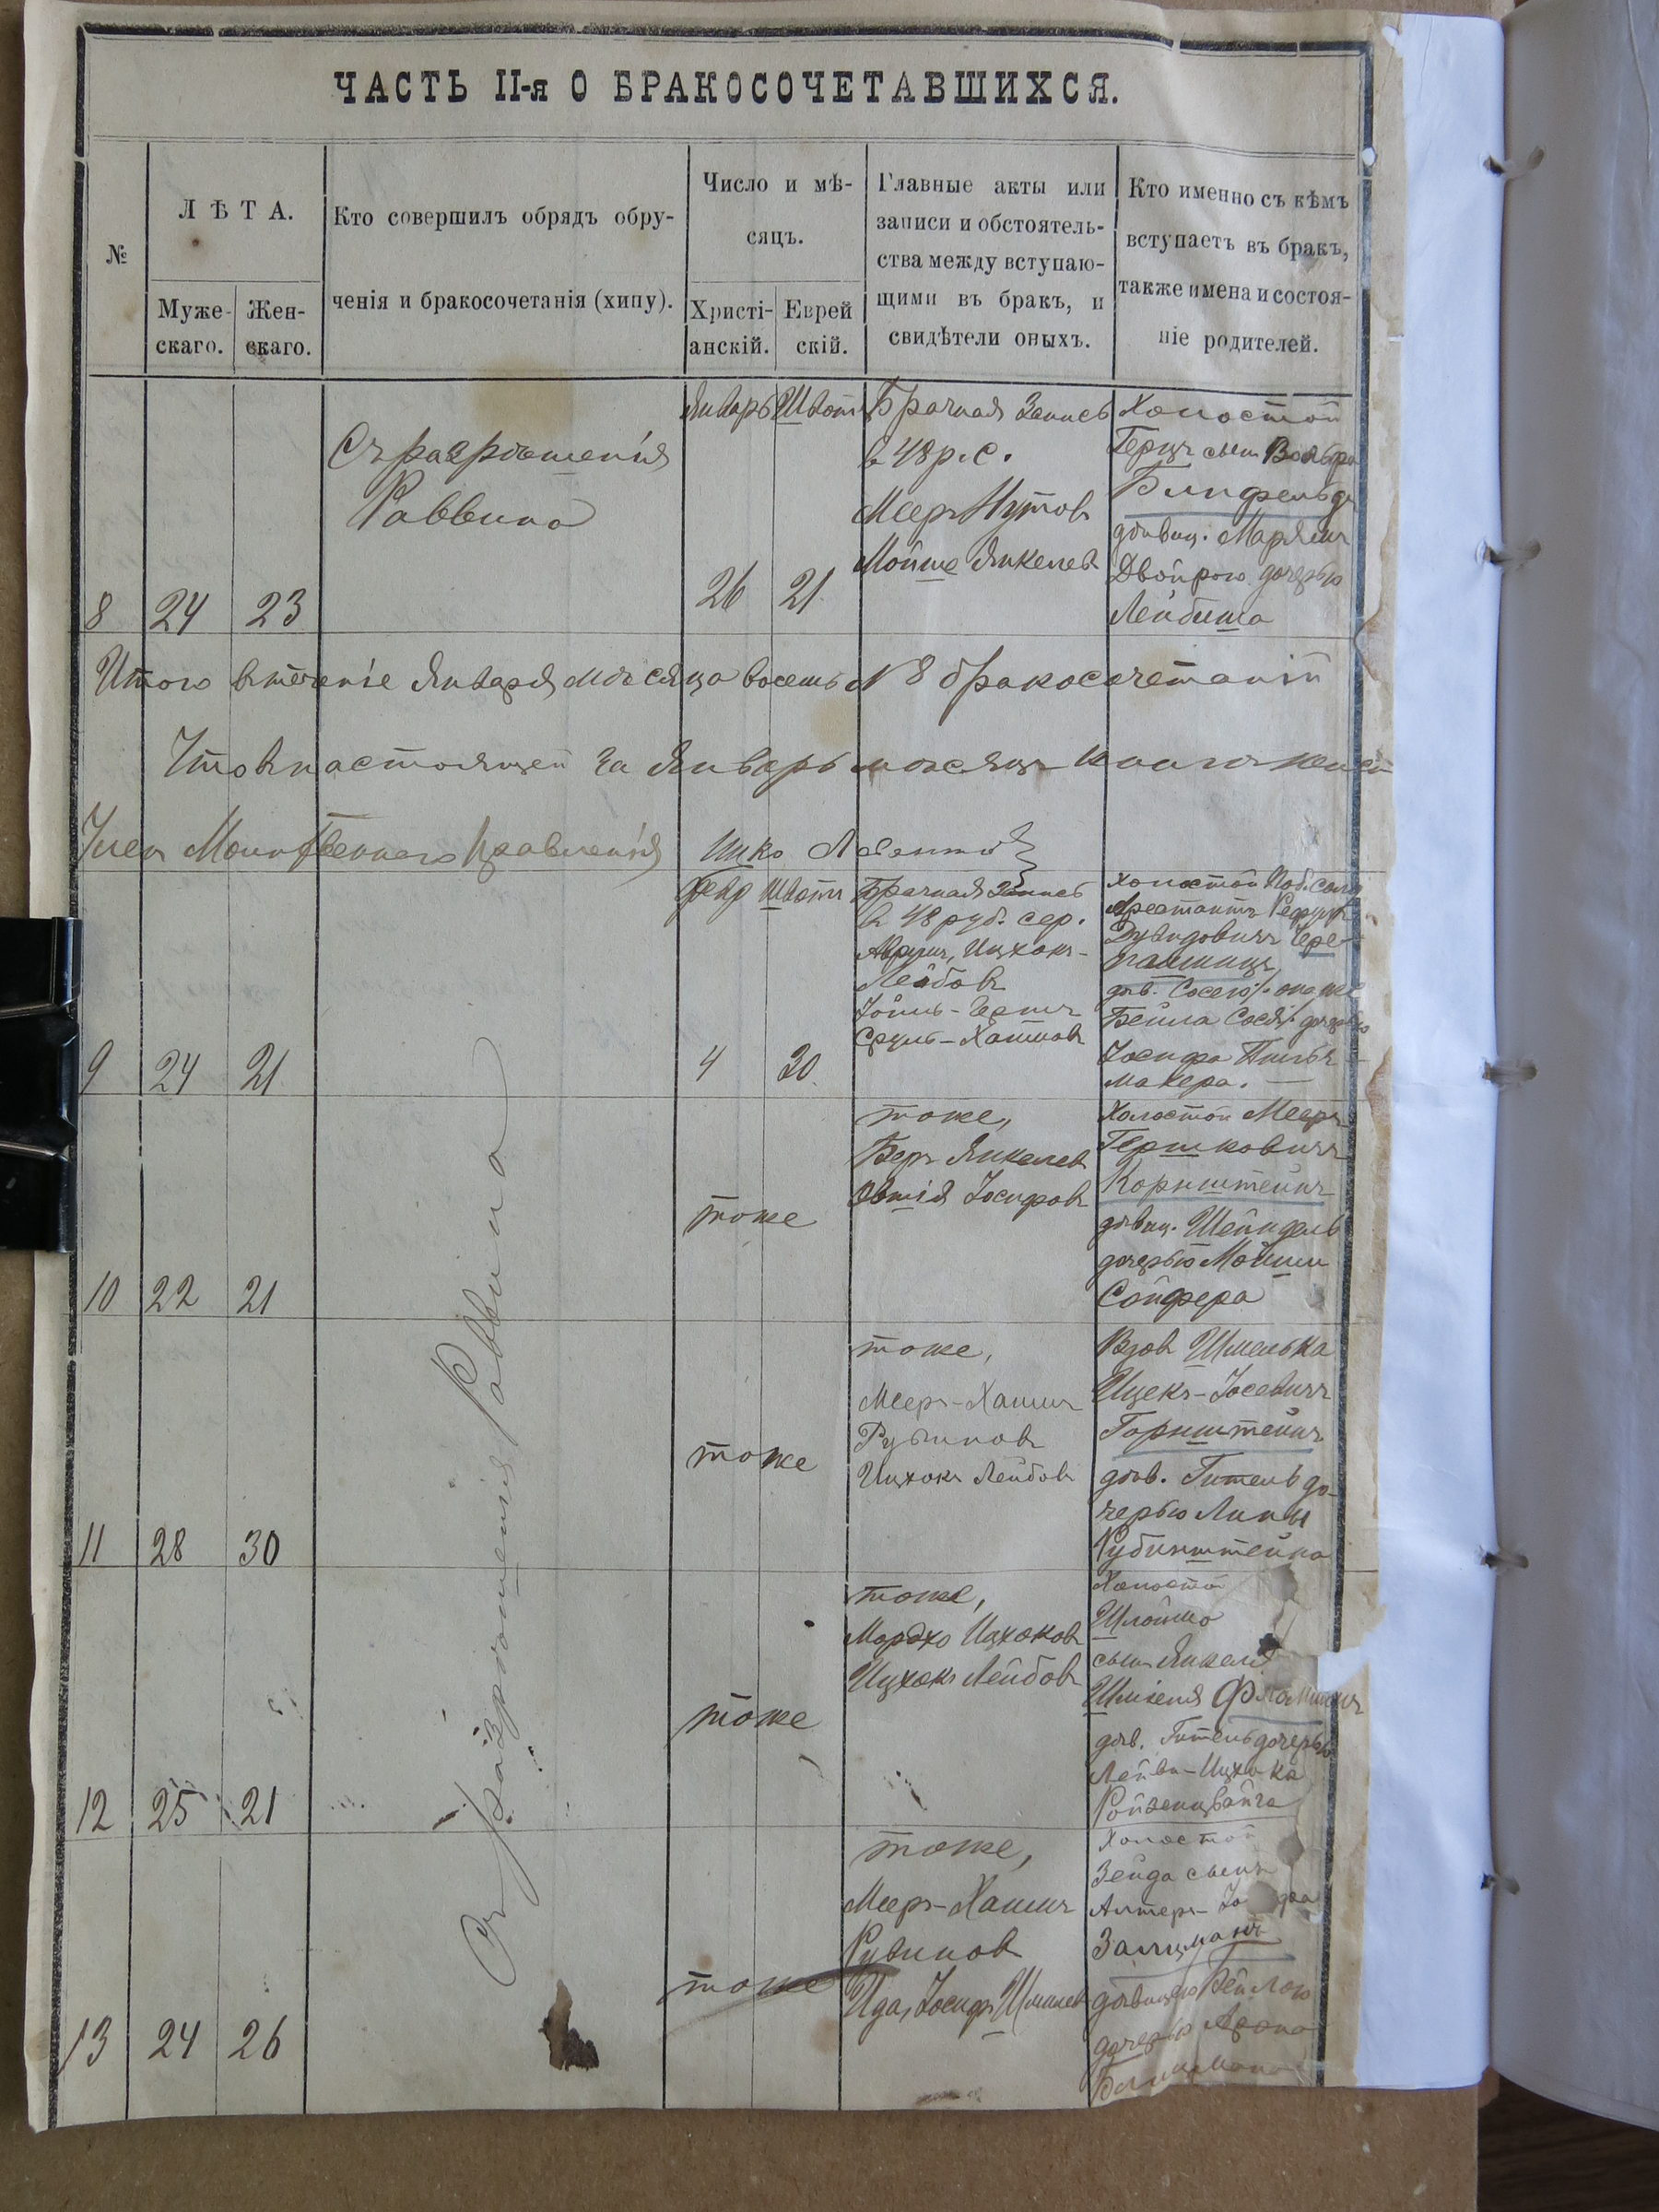 ЧАСТЬ II-я О БРАКОСОЧЕТАВШИХСЯ.
№
ЛѢТА.
Муже-
скаго.
Жен-
скаго.
Кто совершилъ обрядъ обру-
ченія и бракосочетанія (хипу).
Число и мѣ-
сяцъ.
Христі-
анскій.
Еврей
скій.
Главные акты или
записи и обстоятель-
ства между вступаю-
щими въ бракъ, и
свидѣтели оныхъ.
Кто именно съ кѣмъ
вступаетъ въ бракъ,
также имена и состоя-
ніе родителей.
8
24
23
Съ разрѣшенія
Раввина
Январь
26
Шватъ
21
Брачная запись
в 48 р. с.
Меер Нутов
Мойше Янкелев
Холостой
Герцъ сынъ Вольфа
дѣвиц. Марьям
Двойрою дочерью
Лейбиша
Итого в теченіе Января мѣсяца восемь № 8 бракосочетаній
Что в настоящей за Январь мѣсяцъ
Член Молитвеннаго Правленія Ицко
9
24
21
Съ разрѣшенія Раввина
Февр
4
Шватъ
30
Брачная запись
в 48 руб. сер.
Аврумъ, Ицхокъ-
Лейбов
Сруль-Хаимов
холостой
Арестантъ
Дувидовичъ Чере-
пашницъ
дѣв. Сосею /: она же
Бейла Сося :/ дочерью
Іосифа
макера.
10
22
21
тоже
тоже,
Беръ Янкелев
Овшія Іосифовъ
Холостой Мееръ
Гершковичъ
Корнштейнъ
дѣвиц. Шейндель
дочерью Мойши
Сойфера
11
28
30
тоже
тоже,
Мееръ-Хаимъ
Рувинов
Ицхокъ Лейбов
Вдов Шмелька
Ицекъ-Іосевичъ
Горнштейнъ
дѣв. Гитель до-
черью Липы
Рубинштейна
12
25
21
тоже
тоже,
Мордхо Ицхоков
Ицхокъ Лейбов
Холостой
Шлойма
сынъ Янкеля
Шміеля
дѣв. Гитель дочерью
Лейви-Ицхока
Ройзенцвайга
13
24
26
тоже
тоже,
Мееръ-Хаимъ
Рувинов
Ида, Іосифъ Шмилев
Холостой
Зейда сынъ
Алтеръ-
Залцманъ
дѣвицею Бейлою
дочерью Арона